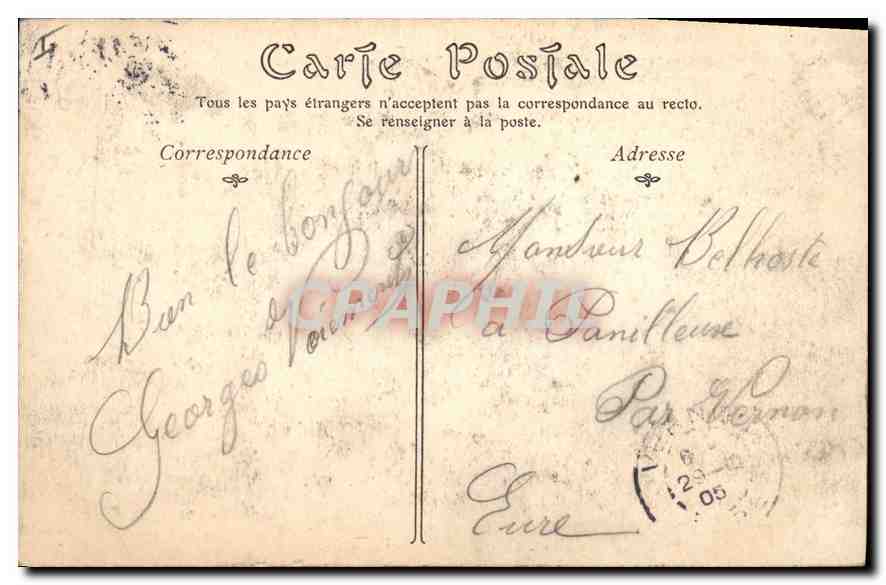 Carte Postale
Tous les pays étrangers n'acceptent pas la correspondance au recto.
Se renseigner à la poste.
Correspondance
Adresse
Bien le bonjour
Georges
Monsieur Belhoste
à Panilleuse
Par Vernon
Eure
29
05
CPAPHIL